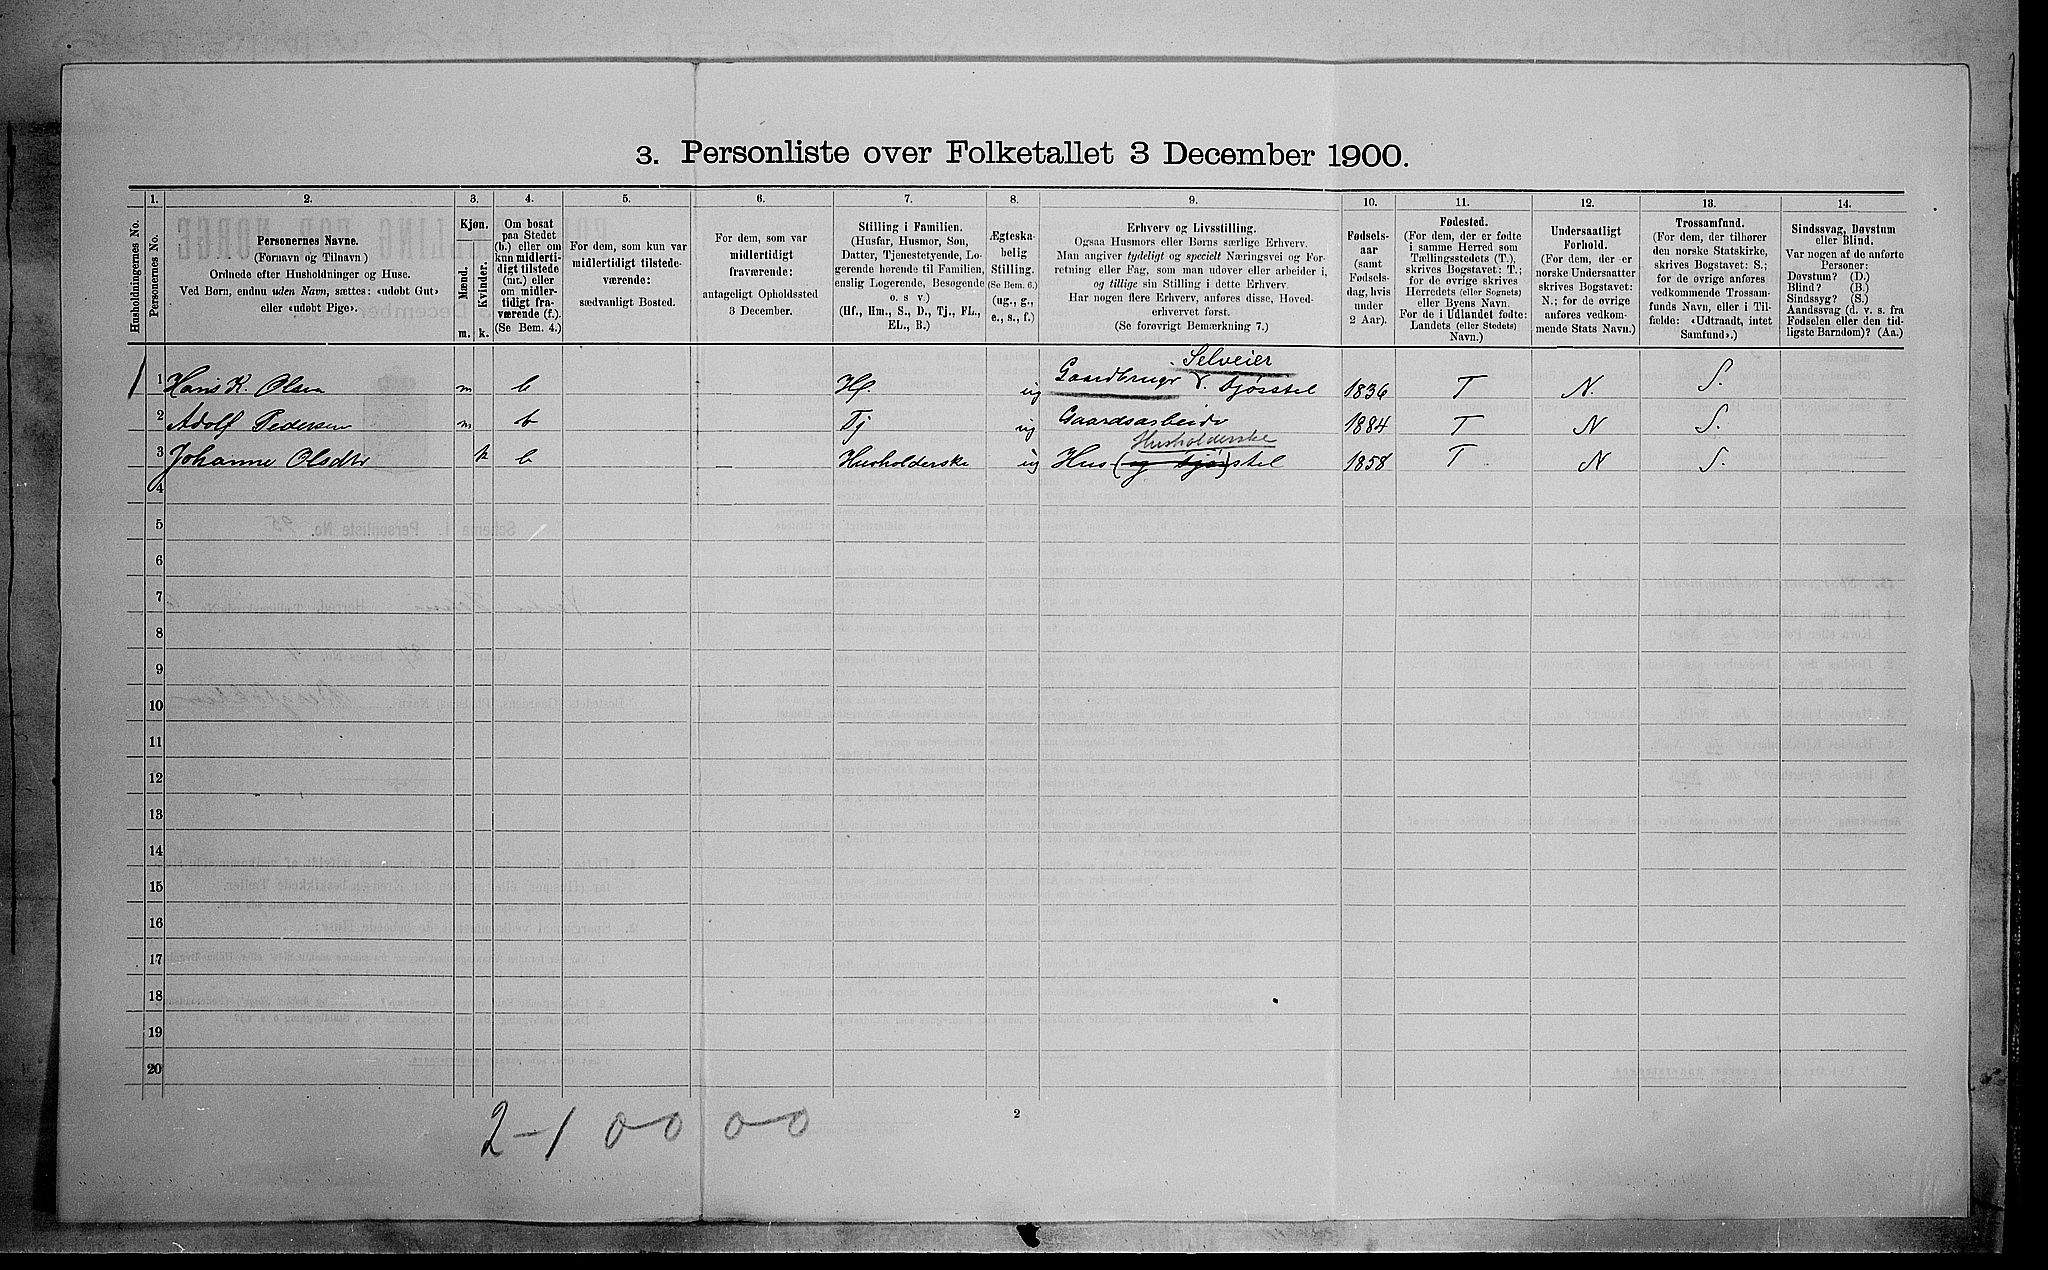 3. Personliste over Folketallet 3 December 1900.
1. 2. 3. 4. 5. 6. 7. 8. 9. 10. 11. 12. 13. 14.
Husholdningernes No.
Personernes No.
Personernes Navne.
(Fornavn og Tilnavn)
Ordnede efter Husholdninger og Huse.
Ved Børn, endnu uden Navn, sættes: «udøbt Gut»
eller «udøbt Pige».
Kjøn.
Mænd.
Kvinder.
m. k.
Om bosat
paa Stedet
(b.) eller om
kun midlerti-
digt tilstede
(mt.) eller
om midler-
tidigt fra-
værende (f.).
(Se Bem. 4.)
For dem, som kun var
midlertidigt tilstede-
værende:
sædvanligt Bosted.
For dem, som var
midlertidigt
fraværende:
antageligt Opholdssted
3 December.
Stilling i Familien.
(Husfar, Husmor, Søn,
Datter, Tjenestetyende, Lo-
gerende hørende til Familien,
enslig Logerende, Besøgende
o. s. v.)
(Hf., Hm., S., D., Tj., FL.,
EL., B.)
Ægteska-
belig
Stilling.
(Se Bem. 6.)
(ug., g.,
e., s., f.)
Erhverv og Livsstilling.
Ogsaa Husmors eller Børns særlige Erhverv.
Man angiver tydeligt og specielt Næringsvei og For-
retning eller Fag, som man udover eller arbeider i,
og tillige sin Stilling i dette Erhverv.
Har nogen flere Erhverv, anføres disse, Hoved-
erhvervet først.
(Se forøvrigt Bemærkning 7.)
Fødsels-
aar
(samt
Fødsels-
dag, hvis
under
2 Aar).
Fødested.
(For dem, der er fødte
i samme Herred som
Tællingsstedets (T.),
skrives Bogstavet: T.;
for de øvrige skrives
Herredets (eller Sognets)
eller Byens Navn.
For de i Udlandet fødte:
Landets (eller Stedets)
Navn.)
Undersaatligt
Forhold.
(For dem, der er
norske Undersaatter
skrives Bogstavet:
N.; for de øvrige
anføres vedkom-
mende Stats Navn.)
Trossamfund.
(For dem, der tilhører
den norske Statskirke,
skrives Bogstavet: S.;
for de øvrige anføres
vedkommende Trossam-
funds Navn, eller i Til-
fælde: «Udtraadt, intet
Samfund».)
Sindssvag, Døvstum
eller Blind.
Var nogen af de anførte
Personer:
Døvstum? (D.)
Blind? (B.)
Sindssyg? (S.)
Aandssvag (d. v. s. fra
Fødselen eller den tid-
ligste Barndom)? (Aa.)
Selveier
1 1 Hans K. Olsen m b Hf. ug Gaardbruger 1836 T N. S.
2 Adolf Pedersen m b Tj ug Gaardsarbeider 1884 T N S.
Husholderske
3 Johanne Olsdtr k b Husholderske ug Hus (og Fjøs) stel 1858 T N S.
4
5
6
7
8
9
10
11
12
13
14
15
16
17
18
19
20
2
2-1 0 0 0 0